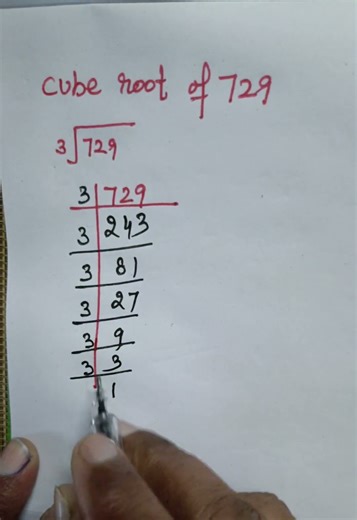 cube root of 729
3√729
3 729
3 243
3 81
3 27
3 9
3 3
1